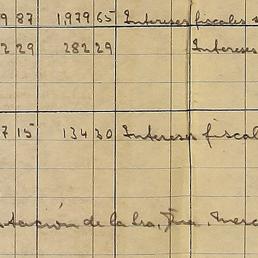 9 87 1,979 65 Intereses fiscales
2 29 282 29 Intereses
7 15 134 30 Intereses fiscal
tación de la Sra,